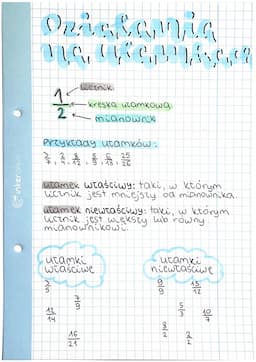 Działania
na ułamkach
1
2
licznik
kreska ułamkowa
mianownik
Przykłady ułamków:
ułamek właściwy: taki, w którym
licznik jest mniejszy od mianownika.
ułamek niewłaściwy: taki, w którym
licznik jest większy lub równy
mianownikowi.
ułamki
właściwe
ułamki
niewłaściwe
2/5
7/9
13/14
16/21
9/9
15/12
5/3
10/7
8/2
2/2